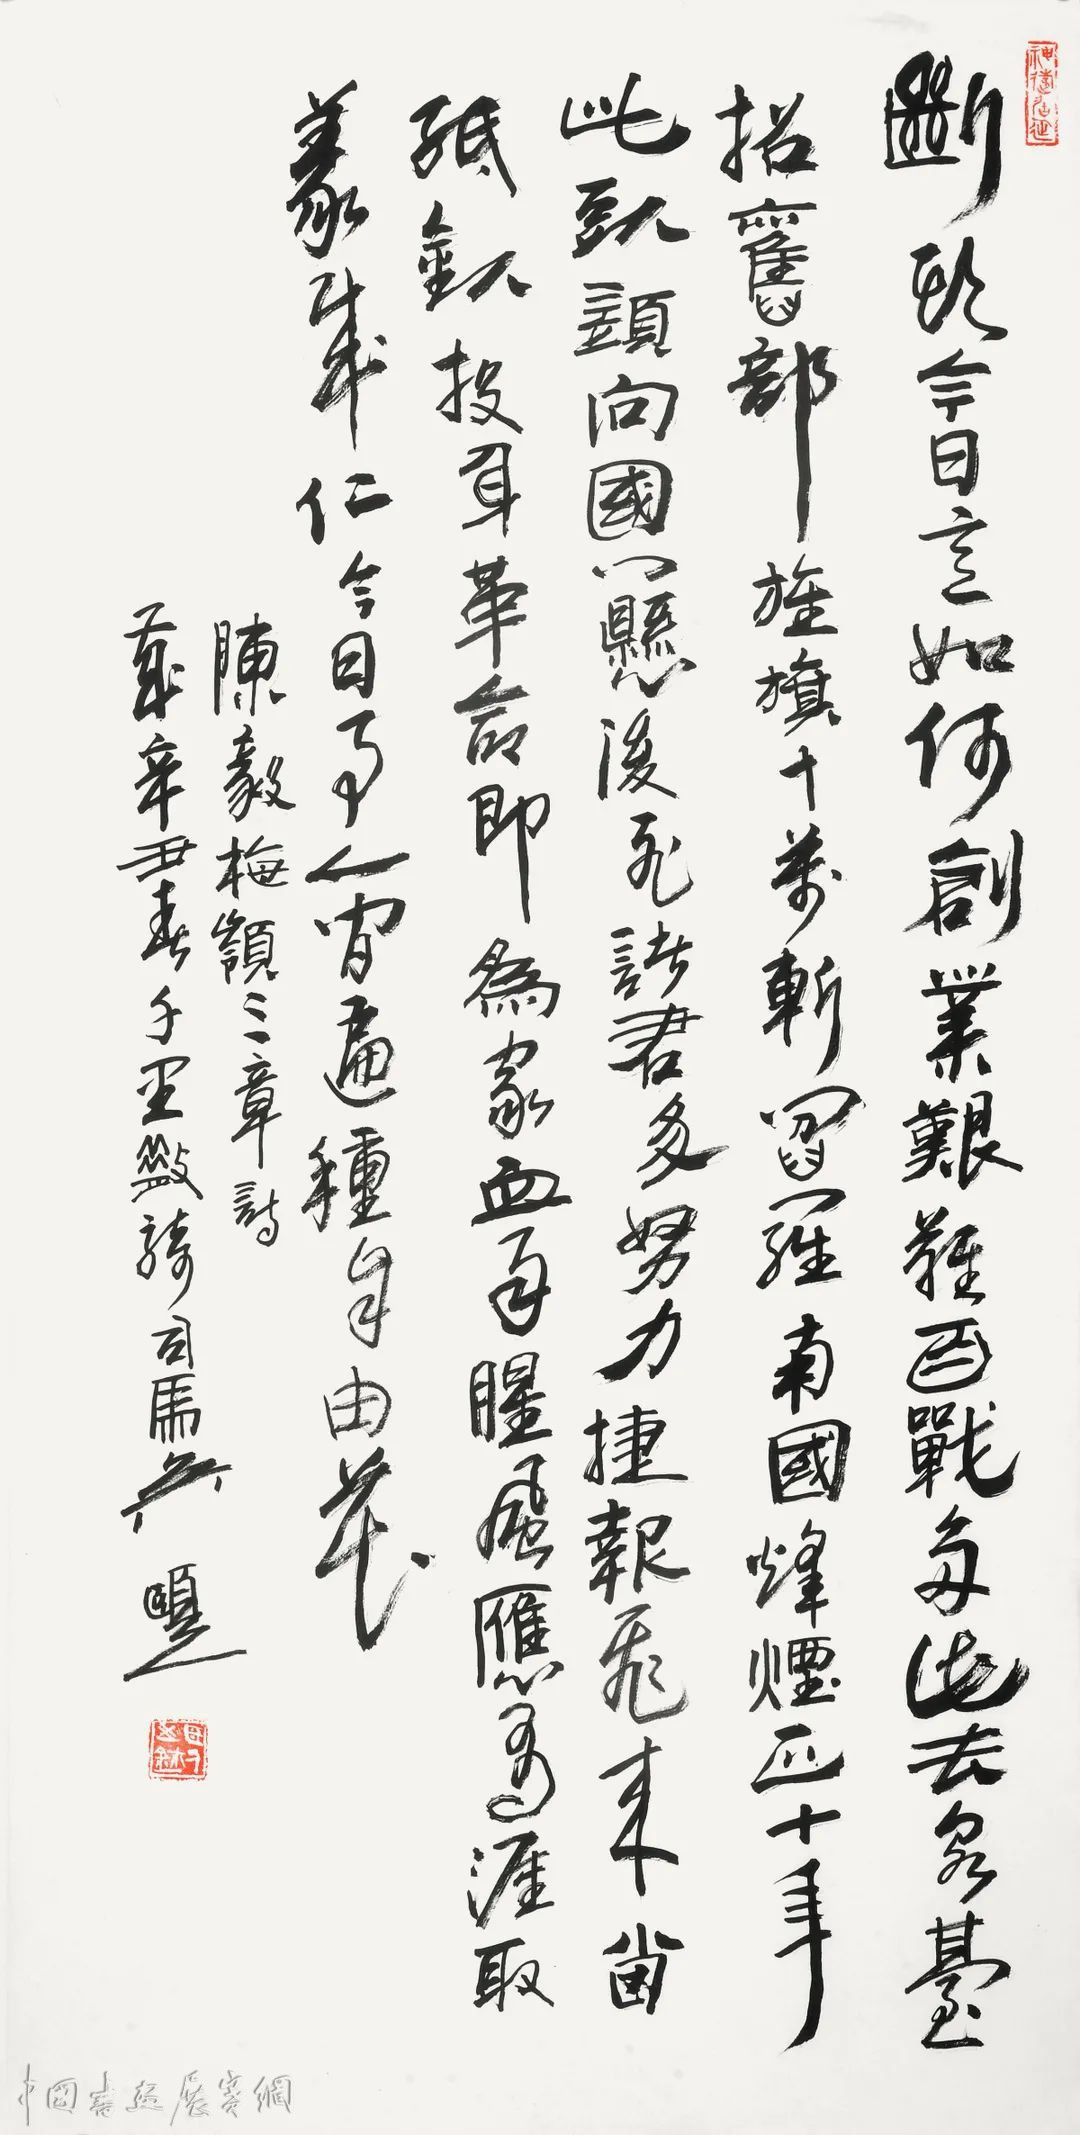 斷頭今日意如何創業艱難百戰多此去泉臺
招舊部旌旗十萬斬閻羅南國烽煙正十年
此頭須向國門懸後死諸君多努力捷報飛來當
紙錢投身革命即為家血雨腥風應有涯取
義成仁今日事人間遍種自由花
陳毅梅嶺三章詩
歲辛丑春千里騎司馬
中國書畫展賽網